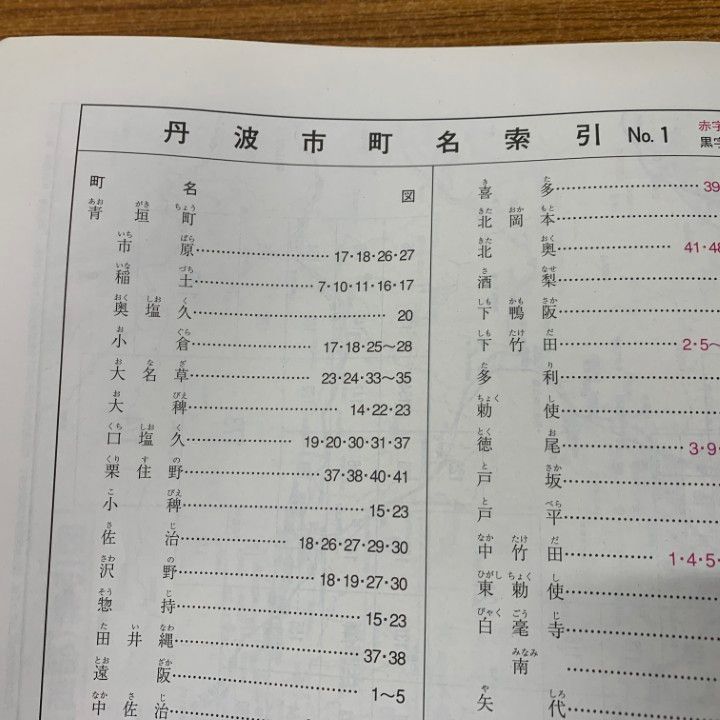 丹波市町名索引 No.1
赤字
黒字
町名 図
青垣町
市原 17·18·26·27
稲土 7·10·11·16·17
奥塩久 20
小倉 17·18·25〜28
大名草 23·24·33〜35
大稗 14·22·23
口塩久 19·20·30·31·37
栗住野 37·38·40·41
小稗 15·23
佐治 18·26·27·29·30
沢野 18·19·27·30
惣持 15·23
田井縄 37·38
遠阪 1〜5
中佐治
喜多 39
北岡本
北奥 41·48
酒梨
下鴨阪
下竹田 2·5〜
多利
勅使
徳尾 3·9·
戸坂
戸平
中竹田 1·4·5·
東勅使
白毫寺
南
矢代